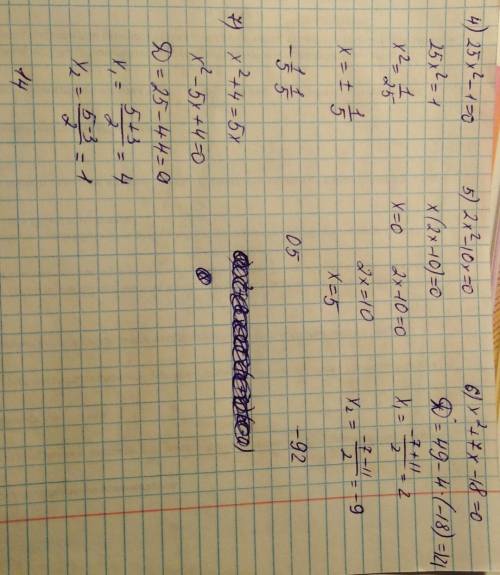 4) 25x²-1=0
25x²=1
x²=1/25
x=±1/5
-1/5 1/5
5) 2x²-10x=0
x(2x-10)=0
x=0 2x-10=0
2x=10
x=5
05
6) x²+7x-18=0
D=49-4·(-18)=121
x₁=(-7+11)/2=2
x₂=(-7-11)/2=-9
-92
7) x²+4=5x
x²-5x+4=0
D=25-4·4=9
x₁=(5+3)/2=4
x₂=(5-3)/2=1
14